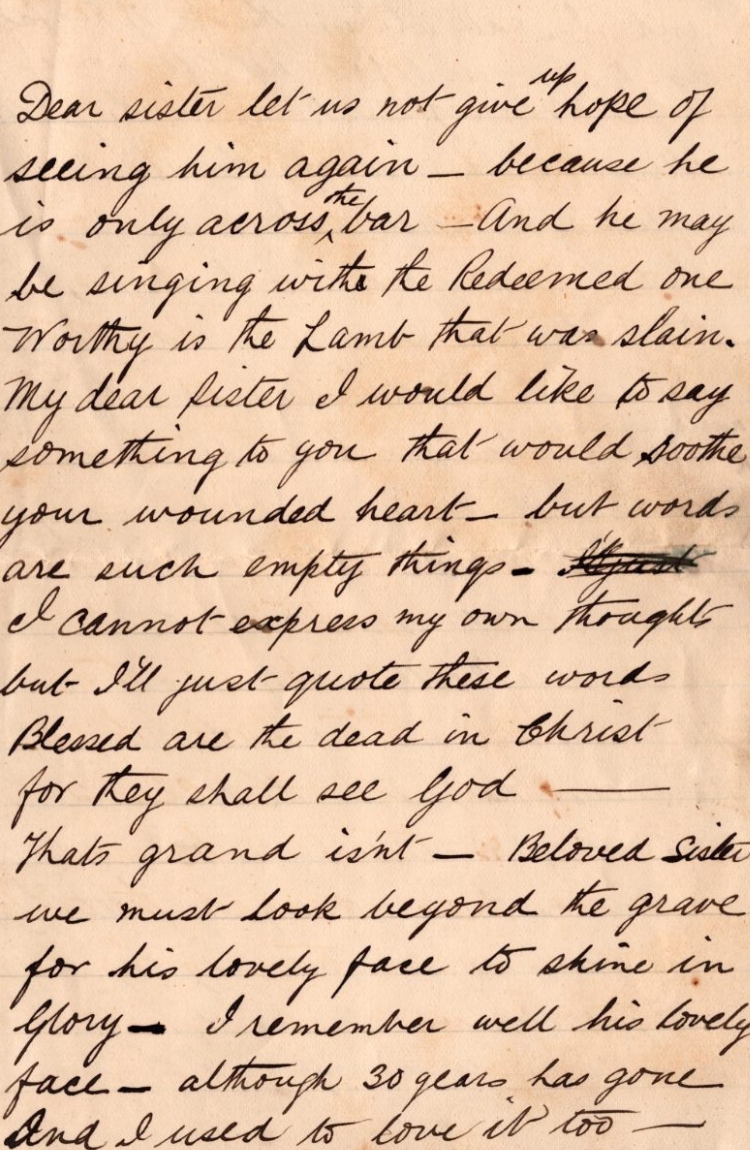 Dear sister let us not give up hope of
seeing him again – because he
is only across the bar – And he may
be singing withe the Redeemed one
Worthy is the Lamb that was slain.
My dear Sister I would like to say
something to you that would soothe
your wounded heart – but words
are such empty things – I'll just
I cannot express my own thoughts
but I'll just quote these words
Blessed are the dead in Christ
for they shall see God —
Thats grand is'nt – Beloved Sister
we must look beyond the grave
for his lovely face to shine in
Glory – I remember well his lovely
face – although 30 years has gone
And I used to love it too —